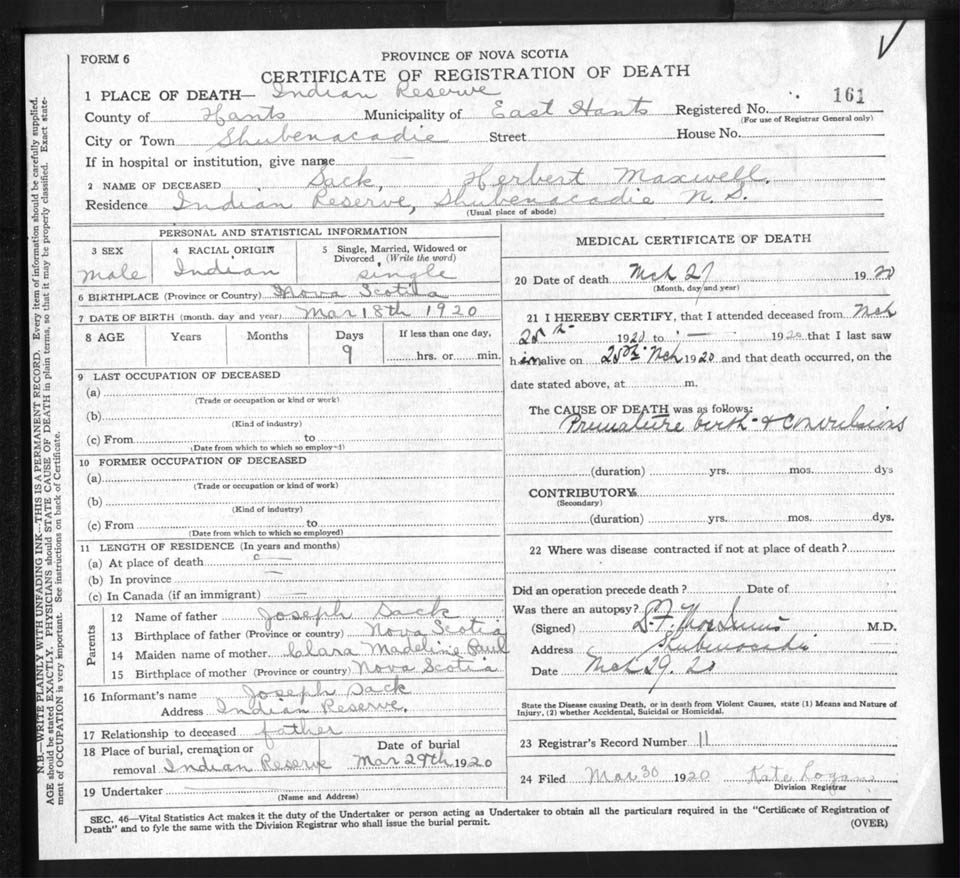 FORM 6
PROVINCE OF NOVA SCOTIA
CERTIFICATE OF REGISTRATION OF DEATH
1 PLACE OF DEATH— Indian Reserve
County of Hants Municipality of East Hants Registered No. 161
(For use of Registrar General only)
City or Town Shubenacadie Street House No.
If in hospital or institution, give name
2 NAME OF DECEASED Sack, Herbert Maxwell.
Residence Indian Reserve, Shubenacadie N. S.
(Usual place of abode)
PERSONAL AND STATISTICAL INFORMATION
3 SEX male
4 RACIAL ORIGIN Indian
5 Single, Married, Widowed or Divorced (Write the word) single
6 BIRTHPLACE (Province or Country) Nova Scotia
7 DATE OF BIRTH (month, day and year) Mar 18th 1920
8 AGE Years Months Days If less than one day,
9 hrs. or min.
9 LAST OCCUPATION OF DECEASED
(a)
(Trade or occupation or kind or work)
(b)
(Kind of industry)
(c) From to
(Date from which to which so employ-1)
10 FORMER OCCUPATION OF DECEASED
(a)
(Trade or occupation or kind of work)
(b)
(Kind of industry)
(c) From to
(Date from which to which so employed)
11 LENGTH OF RESIDENCE (In years and months)
(a) At place of death
(b) In province
(c) In Canada (if an immigrant)
Parents
12 Name of father Joseph Sack
13 Birthplace of father (Province or country) Nova Scotia
14 Maiden name of mother Clara Madeline Paul
15 Birthplace of mother (Province or country) Nova Scotia
16 Informant's name Joseph Sack
Address Indian Reserve.
17 Relationship to deceased father
18 Place of burial, cremation or Date of burial
removal Indian Reserve Mar 29th 1920
19 Undertaker
(Name and Address)
MEDICAL CERTIFICATE OF DEATH
20 Date of death Mch 27 1920
(Month, day and year)
21 I HEREBY CERTIFY, that I attended deceased from Mch
25th 1920 to — 1920 that I last saw
him alive on 25th Mch 1920 and that death occurred, on the
date stated above, at m.
The CAUSE OF DEATH was as follows:
Premature birth & Convulsions
(duration) yrs. mos. dys
CONTRIBUTORY
(Secondary)
(duration) yrs. mos. dys.
22 Where was disease contracted if not at place of death?
Did an operation precede death? Date of
Was there an autopsy?
(Signed) M.D.
Address Shubenacadie
Date Mch 29. 20
State the Disease causing Death, or in death from Violent Causes, state (1) Means and Nature of
Injury, (2) whether Accidental, Suicidal or Homicidal.
23 Registrar's Record Number 11
24 Filed Mar 30 1920 Kate Logan
Division Registrar
SEC. 46—Vital Statistics Act makes it the duty of the Undertaker or person acting as Undertaker to obtain all the particulars required in the "Certificate of Registration of
Death" and to fyle the same with the Division Registrar who shall issue the burial permit.
(OVER)
N.B.—WRITE PLAINLY WITH UNFADING INK—THIS IS A PERMANENT RECORD. Every item of information should be carefully supplied.
AGE should be stated EXACTLY. PHYSICIANS should STATE CAUSE OF DEATH in plain terms, so that it may be properly classified. Exact state-
ment of OCCUPATION is very important. See instructions on back of Certificate.